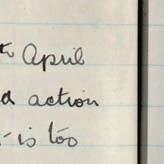 th April
action
is too